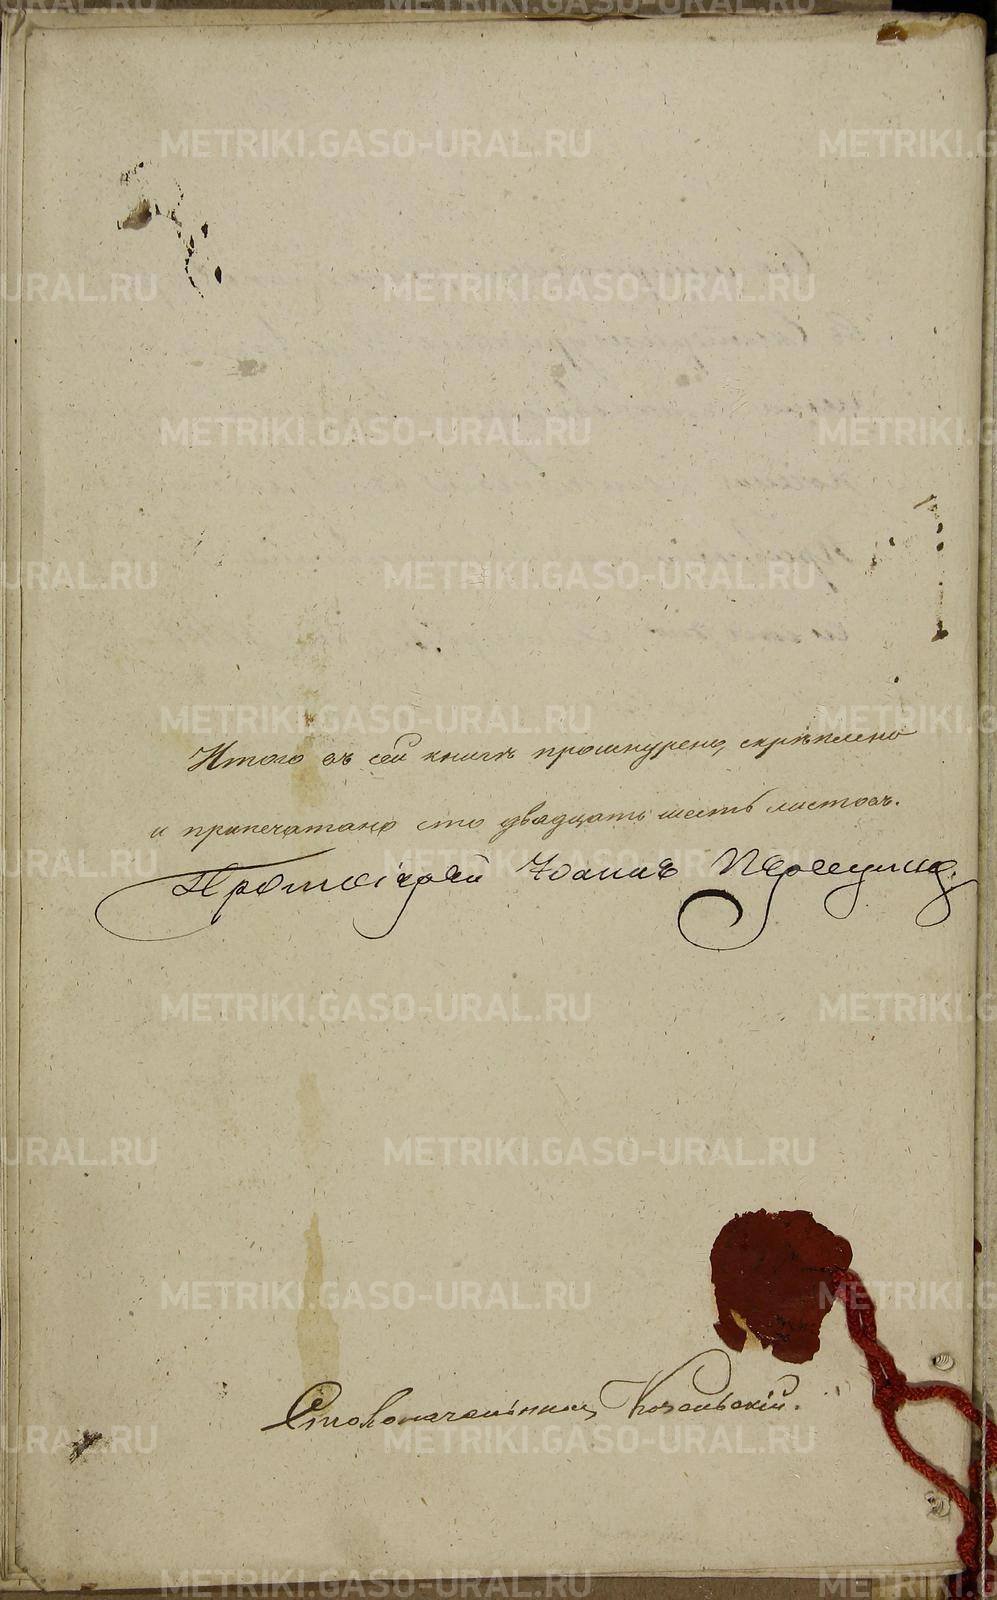 Итого въ сей книгѣ прошнурено, скрѣплено
и припечатано сто двадцать шесть листовъ.
Протоіерей Іоаннъ
Столоначальникъ Козельскій.
METRIKI.GASO-URAL.RU